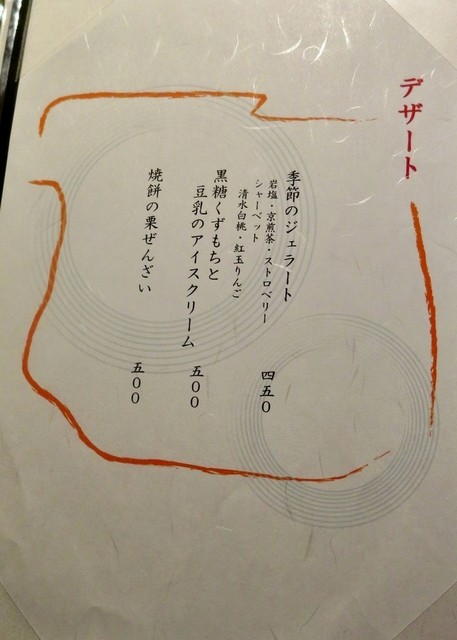 デザート
季節のジェラート 四五0
岩塩・京煎茶・ストロベリー
シャーベット
清水白桃・紅玉りんご
黒糖くずもちと
豆乳のアイスクリーム 五00
焼餅の栗ぜんざい 五00